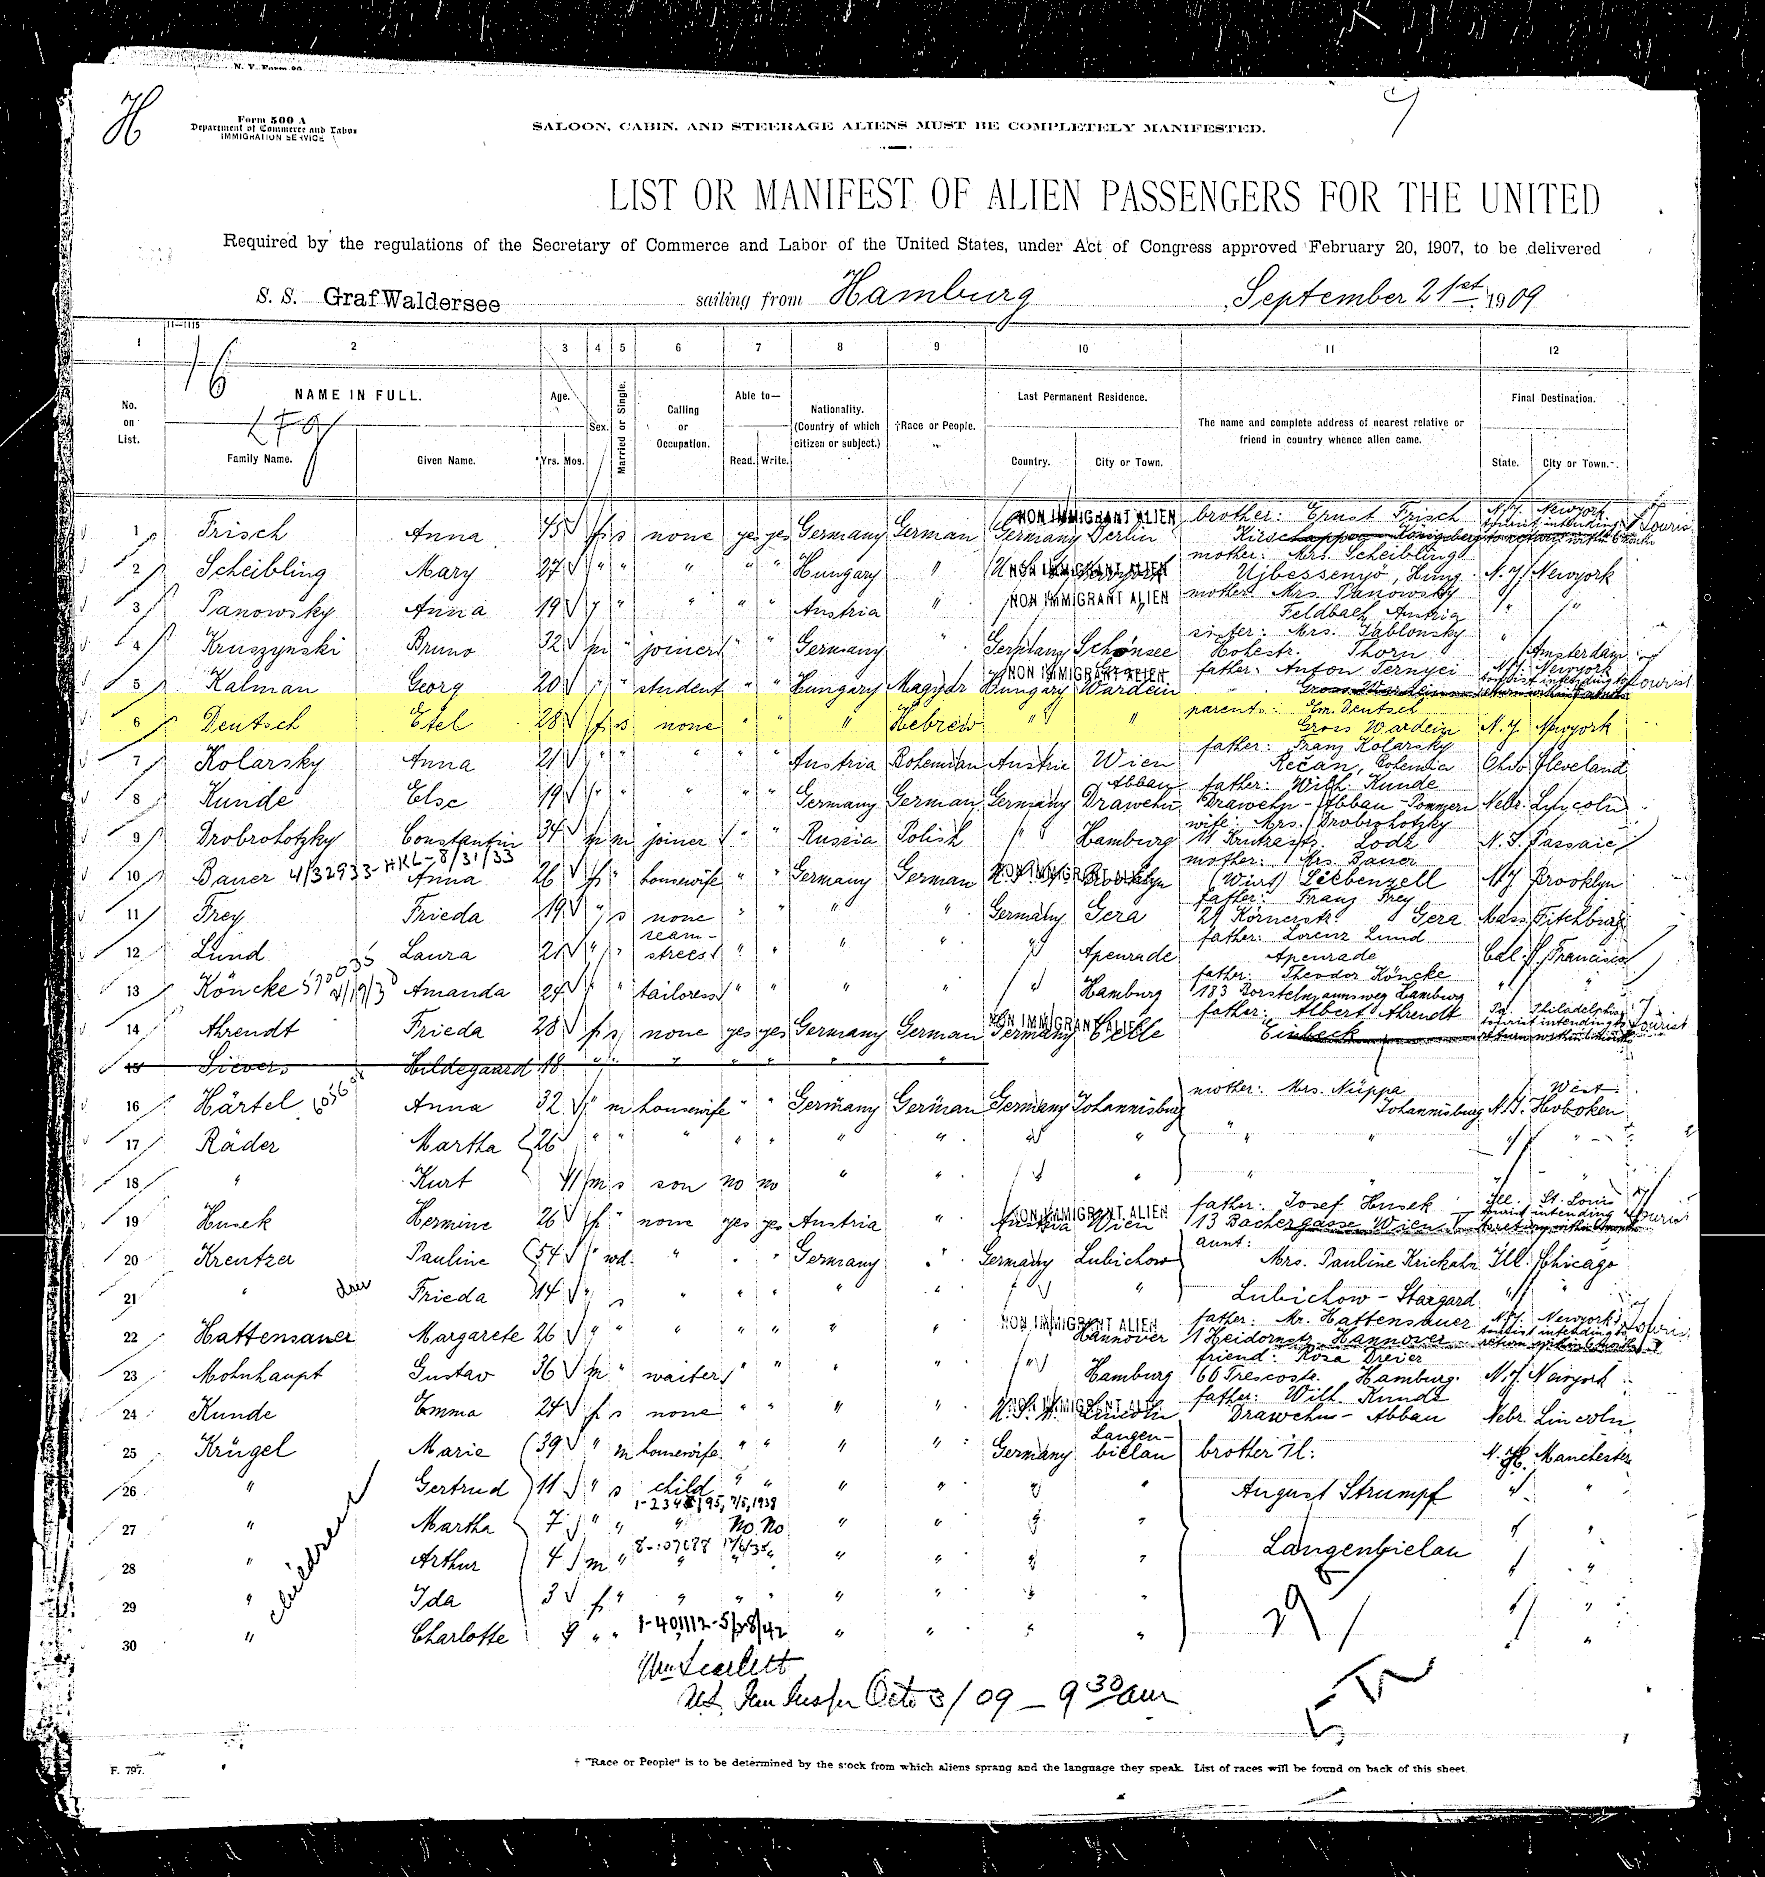 N. Y. Form 89
H
Form 500 A
Department of Commerce and Labor
IMMIGRATION SERVICE
SALOON, CABIN, AND STEERAGE ALIENS MUST BE COMPLETELY MANIFESTED.
LIST OR MANIFEST OF ALIEN PASSENGERS FOR THE UNITED
Required by the regulations of the Secretary of Commerce and Labor of the United States, under Act of Congress approved February 20, 1907, to be delivered
S. S. Graf Waldersee sailing from Hamburg September 21st 1909
11—1115
1 2 3 4 5 6 7 8 9 10 11 12
16
No. on List. NAME IN FULL. Family Name. Given Name. Age. Yrs. Mos. Sex. Married or Single. Calling or Occupation. Able to— Read. Write. Nationality. (Country of which citizen or subject.) †Race or People. Last Permanent Residence. Country. City or Town. The name and complete address of nearest relative or friend in country whence alien came. Final Destination. State. City or Town.
1 Frisch Anna 45 f s none yes yes Germany German NON IMMIGRANT ALIEN Germany Berlin brother: Ernst Frisch N.Y. Newyork tourist intending to
2 Scheibling Mary 27 " " " " " Hungary " NON IMMIGRANT ALIEN mother: Mrs. Scheibling Ujbessenyö, Hung. N.Y. Newyork
3 Panowsky Anna 19 " " " " " Austria " NON IMMIGRANT ALIEN mother: Mrs Panowsky Feldbach Austria " "
4 Kruszynski Bruno 32 m " joiner " " Germany " Germany Schönsee sister: Mrs. Jablonsky Thorn " Amsterdam
5 Kalman Georg 20 " " student " " Hungary Magyar NON IMMIGRANT ALIEN Hungary Gross Wardein father: Anton Ternyei Gross Wardein N.Y. Newyork tourist intending to
6 Deutsch Etel 28 f s none " " " Hebrew " " parents: Em. Deutsch Gross Wardein N.Y. Newyork
7 Kolarsky Anna 21 " " " " " Austria Bohemian Austria Wien father: Franz Kolarsky Rečan, Bohemia Ohio Cleveland
8 Kunde Else 19 " " " " " Germany German Germany Abbau Drawehn father: Wilh. Kunde Drawehn - Abbau - Pommern Nebr. Lincoln
9 Drobrohotzky Constantin 34 m m joiner " " Russia Polish " Hamburg wife: Mrs. Drobrohotzky Lodz N.J. Passaic
10 Bauer 4/32933-HKL-8/31/33 Anna 26 f " housewife " " Germany German NON IMMIGRANT ALIEN Brooklyn mother: Mrs Bauer (Würt) Liebenzell N.Y. Brooklyn
11 Frey Frieda 19 " s none " " " " Germany Gera father: Franz Frey 29 Körnerstr. Gera Mass. Fitchburg
12 Lund Laura 21 " " seamstress " " " " " Apenrade father: Lorenz Lund Apenrade Cal. S. Francisco
13 Köncke Amanda 24 " " tailoress " " " " " Hamburg father: Theodor Köncke 183 Borstelmannsweg Hamburg " "
14 Ahrendt Frieda 28 f s none yes yes Germany German NON IMMIGRANT ALIEN Germany Celle father: Albert Ahrendt Einbeck Pa. Philadelphia tourist intending to
15 Sievers Hildegaard 18 " " " " " " "
16 Härtel Anna 32 " m housewife " " Germany German Germany Johannisburg mother: Mrs. Nüppa Johannisburg N.J. West Hoboken
17 Räder Martha 26 " " " " " " " " " " " " "
18 " Kurt m s son no no " " " " " " "
19 Husek Hermine 26 f " none yes yes Austria " NON IMMIGRANT ALIEN Austria Wien father: Josef Husek 13 Bachergasse Wien Ill. St. Louis tourist intending
20 Kreutzer Pauline 54 " wd. " " " Germany " Germany Lubichow aunt: Mrs. Pauline Krickahn Ill. Chicago
21 " Frieda 14 " s " " " " " " " Lubichow - Stargard " "
22 Hattensauer Margarete 26 " " " " " " " NON IMMIGRANT ALIEN Hannover father: Mr. Hattensauer Hannover N.Y. Newyork tourist intending to
23 Mohnhaupt Gustav 36 m " waiter " " " " " Hamburg friend: Rosa Dreier 66 Trescostr. Hamburg. N.Y. Newyork
24 Kunde Emma 24 f s none " " " " U.S.A. Lincoln father: Wilh. Kunde Drawehn - Abbau Nebr. Lincoln
25 Krügel Marie 39 " m housewife " " " " Germany Langenbielau brother i. l: N.H. Manchester
26 " Gertrud 11 " s child " " " " " " August Strumpf " "
27 " Martha 7 " " " No No " " " " " "
28 " Arthur 4 m " " " " " " " " Langenbielau " "
29 " Ida 3 f " " " " " " " " " "
30 " Charlotte 9 " " 1-401112-5/28/42 " " " " " "
children
Oct 3/09 — 9 30 am
† "Race or People" is to be determined by the stock from which aliens sprang and the language they speak. List of races will be found on back of this sheet.
F. 797.